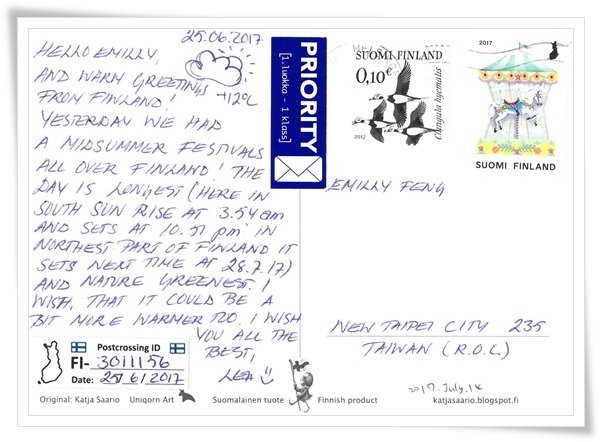 25.06.2017
HELLO EMILLY,
AND WARM GREETINGS
FROM FINLAND!
+12°C
YESTERDAY WE HAD
A MIDSUMMER FESTIVALS
ALL OVER FINLAND! THE
DAY IS LONGEST (HERE IN
SOUTH SUN RISE AT 3.54 am
AND SETS AT 10.51 pm IN
NORTHEST PART OF FINLAND IT
SETS NEXT TIME AT 28.7.17)
AND NATURE GREENEST. I
WISH, THAT IT COULD BE A
BIT MORE WARMER TOO. I WISH
YOU ALL THE
BEST,
LEA
Postcrossing ID
FI- 3011156
Date: 25/6/2017
Original: Katja Saario Uniqorn Art
Suomalainen tuote Finnish product
PRIORITY
[1.luokka - 1 klass]
SUOMI FINLAND
0,10€
Clangula hyemalis
2017
2017
SUOMI FINLAND
EMILLY FENG
NEW TAIPEI CITY 235
TAIWAN (R.O.C)
2017.July.14
katjasaario.blogspot.fi